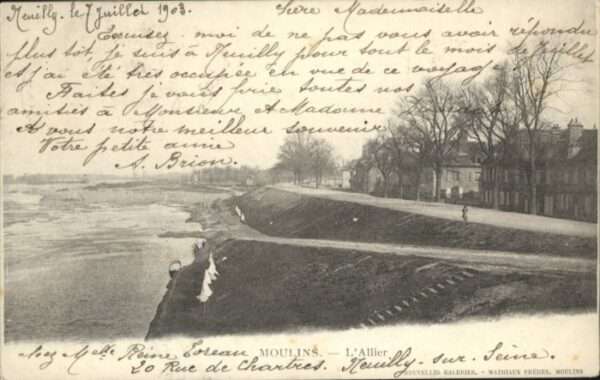 Neuilly, le 7 Juillet 1903. Chère Mademoiselle
Excusez-moi de ne pas vous avoir répondu
plus tôt, je suis à Neuilly pour tout le mois de Juillet
et j'ai été très occupée en vue de ce voyage.
Faites je vous prie toutes nos
amitiés à Monsieur et Madame
et à vous notre meilleur souvenir
Votre petite amie
A. Brion.
MOULINS. — L'Allier
chez Melle Reine
20 Rue de Chartres. Neuilly-sur-Seine.
NOUVELLES GALERIES. - MATHIAUX FRÈRES, MOULINS